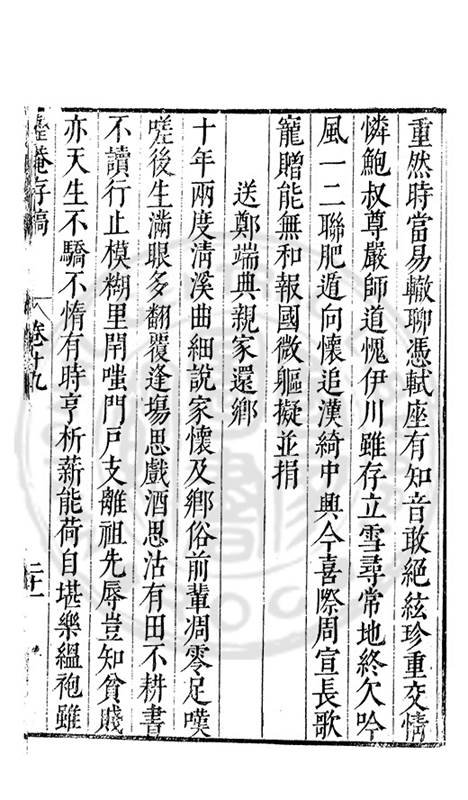 重然時當易轍聊憑軾座有知音敢絕絃珍重交情
憐鮑叔尊嚴師道愧伊川雖存立雪尋常地終欠吟
風一二聯肥遁向懷追漢綺中興今喜際周宣長歌
寵贈能無和報國微軀擬並捐
送鄭端典親家還鄉
十年兩度淸溪曲細說家懷及鄉俗前輩凋零足嘆
嗟後生滿眼多翻覆逢塲思戲酒思沽有田不耕書
不讀行止模糊里閈嗤門戶支離祖先辱豈知貧賤
亦天生不驕不惰有時亨析薪能荷自堪樂縕袍雖
菴存稿
卷十九
二十一